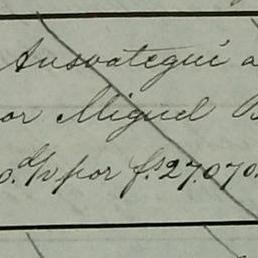 Ansoategui a
or Miguel B
0. d/v por f.s 27.070